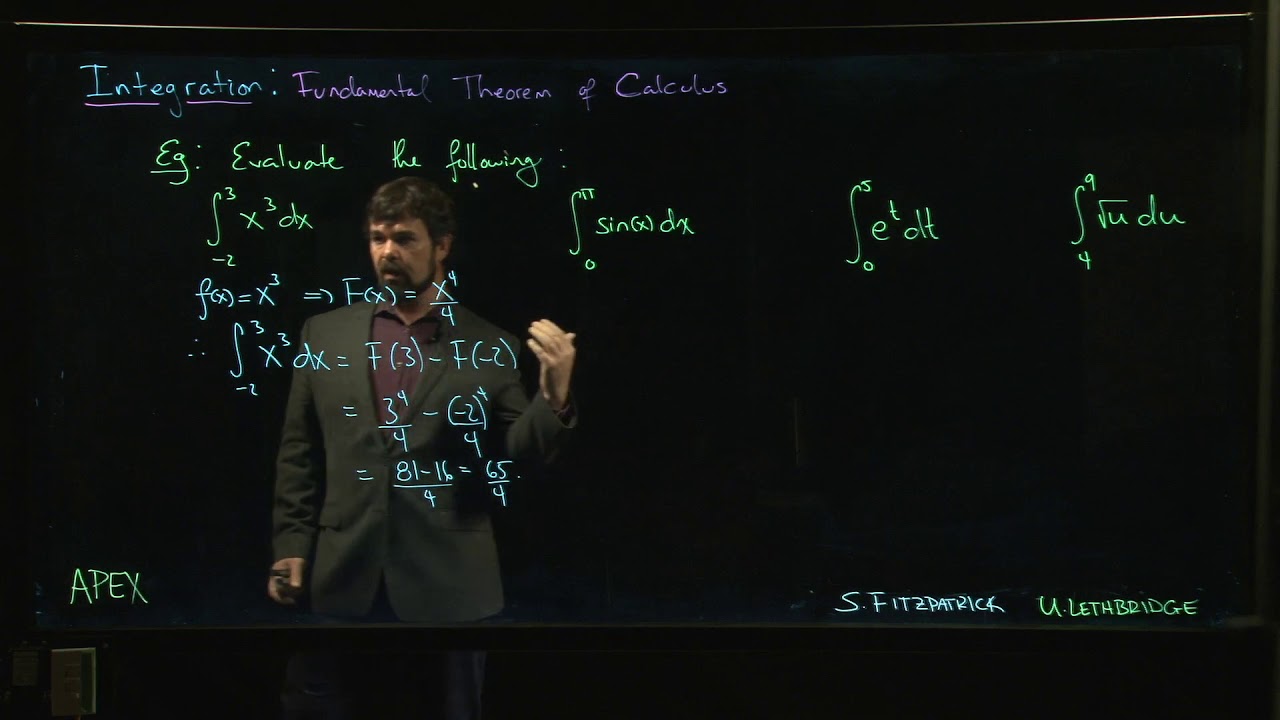 Integration: Fundamental Theorem of Calculus
Eg: Evaluate the following:
∫_{-2}^{3} x³dx    ∫_{0}^{π} sin(x)dx    ∫_{0}^{5} e^t dt    ∫_{4}^{9} √u du
f(x)=x³ ⇒ F(x) = x⁴/4
∴ ∫_{-2}^{3} x³dx = F(3) − F(-2)
= 3⁴/4 − (-2)⁴/4
= (81−16)/4 = 65/4.
APEX
S. FITZPATRICK    U. LETHBRIDGE